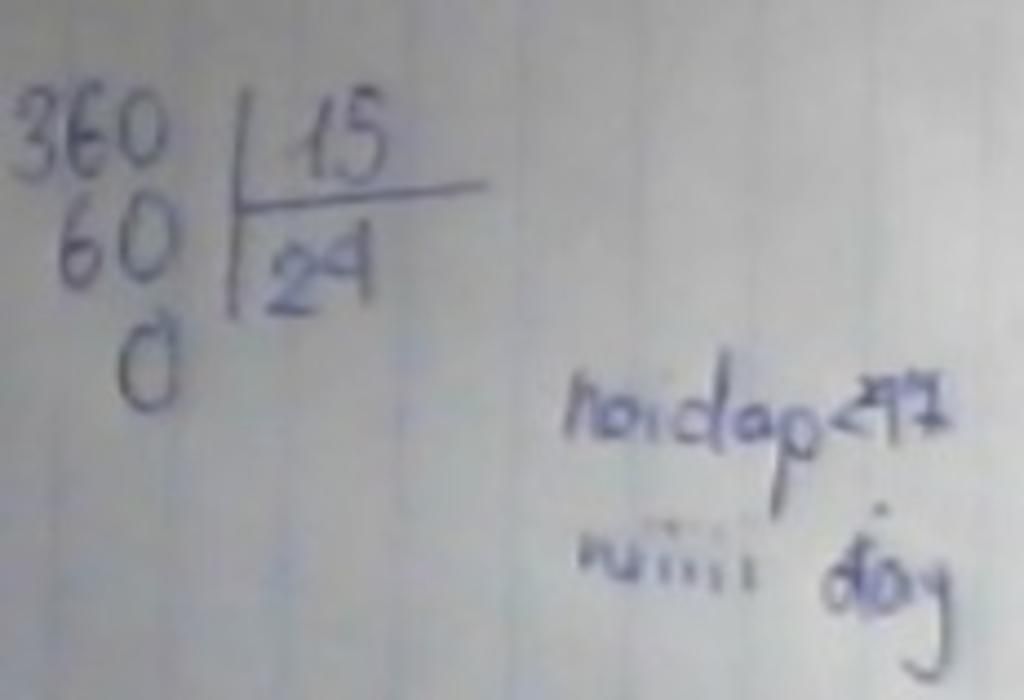 360 | 15
60 | 24
0
hoidap247
niiiii đây